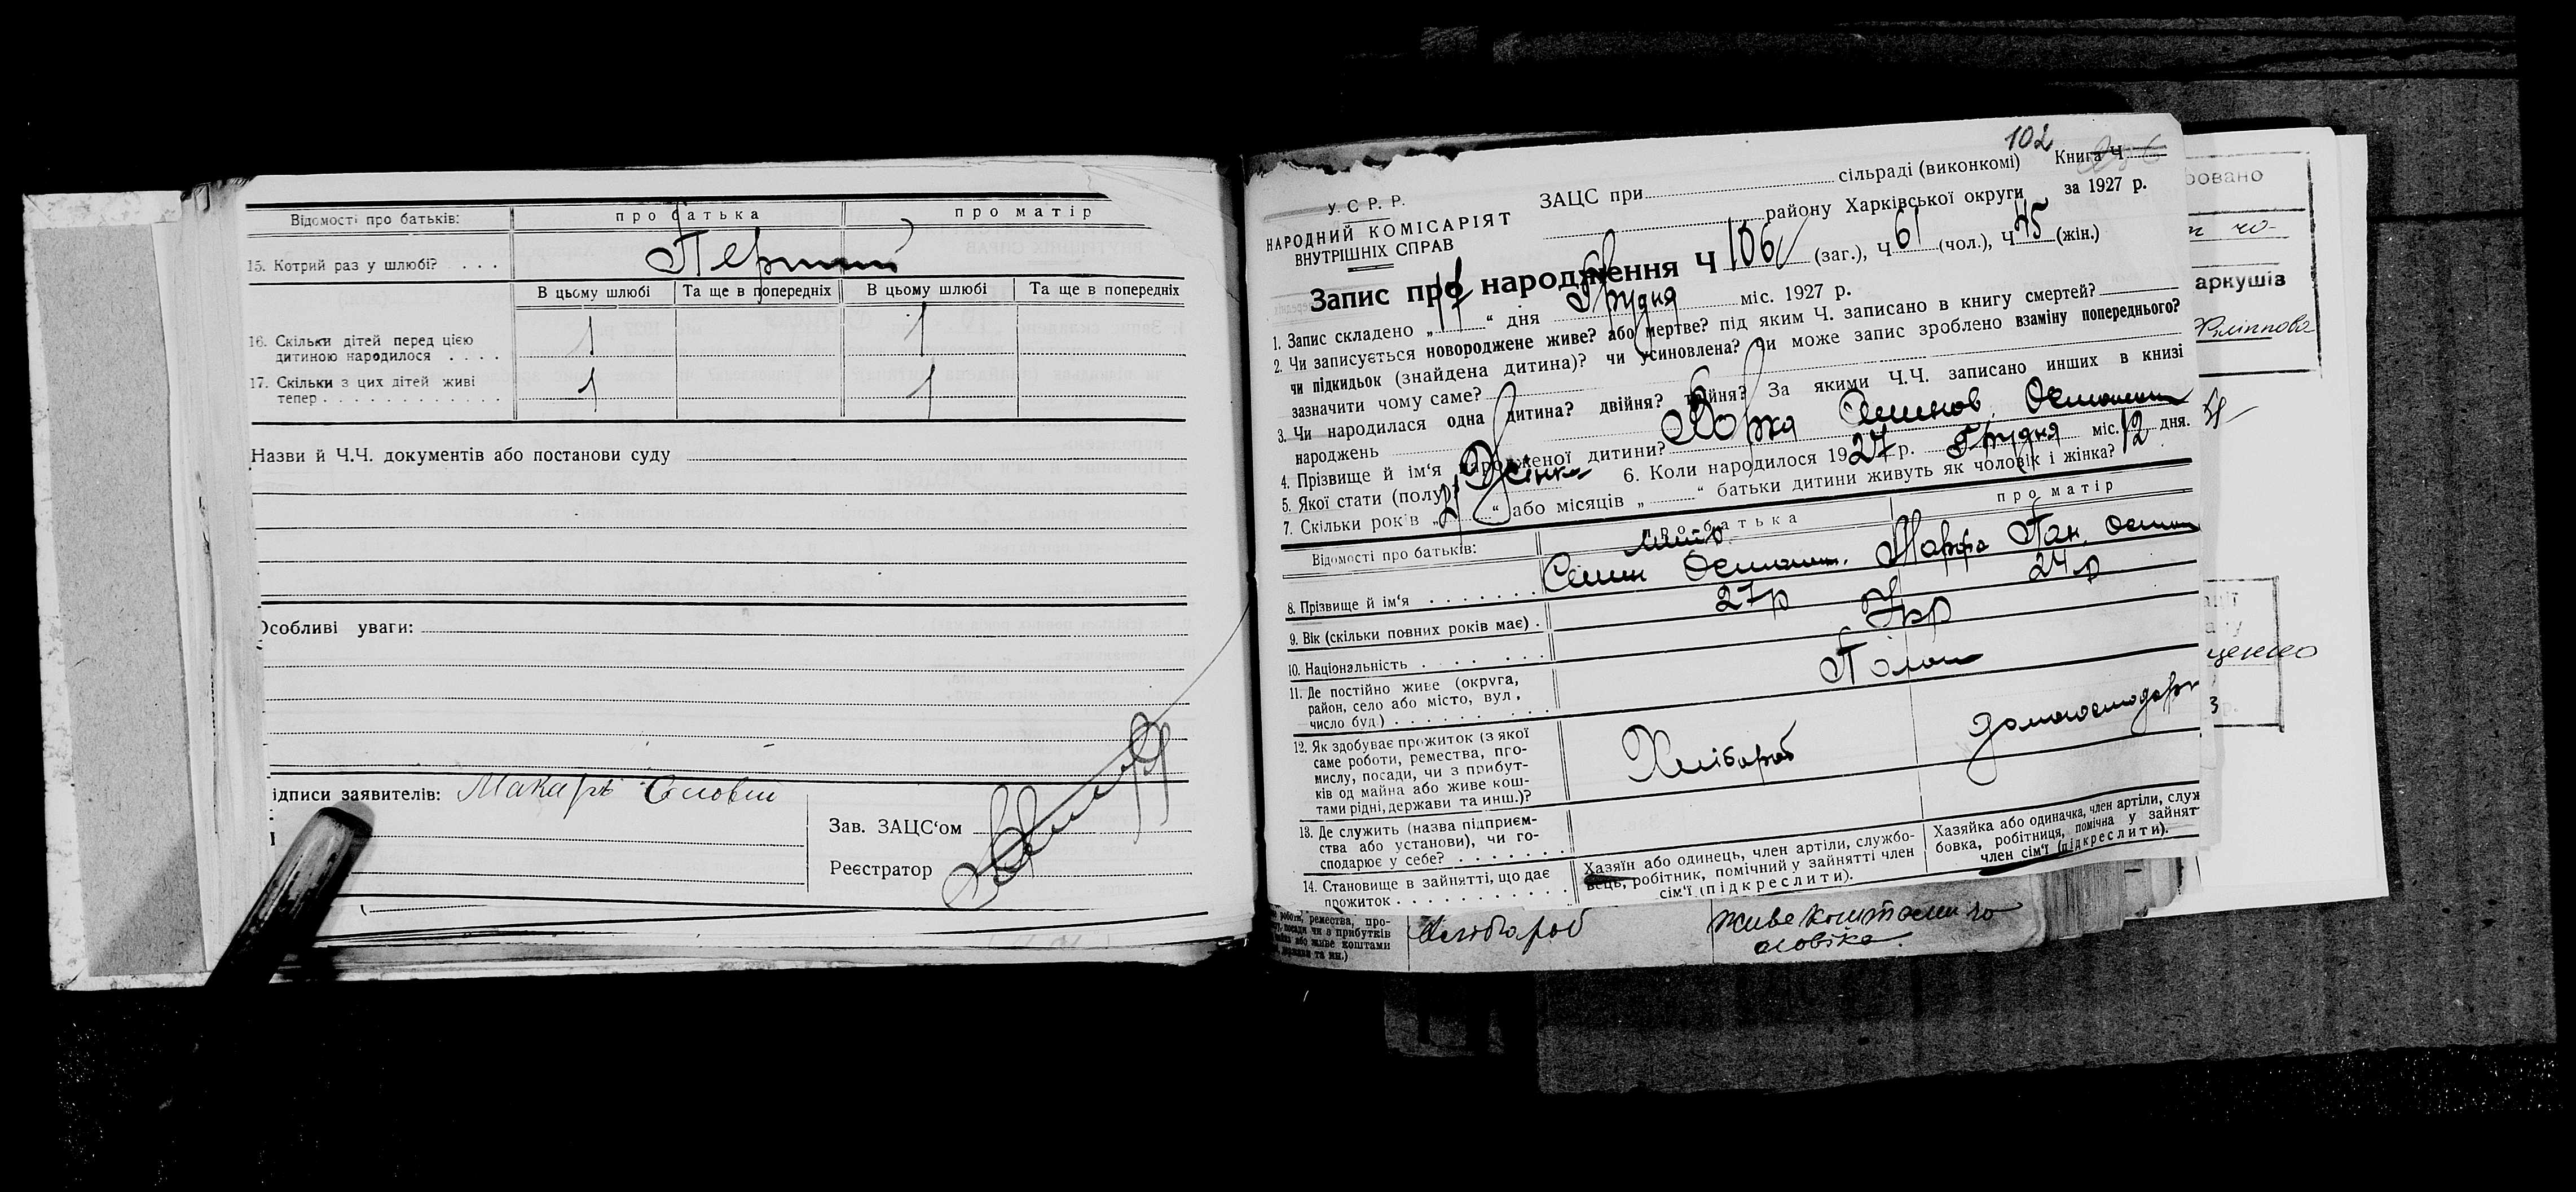 Відомості про батьків:
про батька
про матір
15. Котрий раз у шлюбі? . . . .
Перший
В цьому шлюбі
Та ще в попередніх
В цьому шлюбі
Та ще в попередніх
16. Скільки дітей перед цією
дитиною народилося . . . .
1
1
17. Скільки з цих дітей живі
тепер . . . . . . . . . . . . .
1
1
Назви й Ч.Ч. документів або постанови суду
Особливі уваги:
ідписи заявителів:
Макаръ
Зав. ЗАЦС‘ом
Реєстратор
102
У. С Р. Р.
НАРОДНИЙ КОМІСАРІЯТ
ВНУТРІШНІХ СПРАВ
ЗАЦС при
сільраді (виконкомі)
Книга Ч
району Харківської округи
за 1927 р.
Запис про народження Ч 106 (заг.), Ч 61 (чол.), Ч 45 (жін.)
1. Запис складено „ “ дня Грудня міс. 1927 р.
2. Чи записується новороджене живе? або мертве? під яким Ч. записано в книгу смертей?
чи підкидьок (знайдена дитина)? чи усиновлена? чи може запис зроблено взаміну попереднього?
зазначити чому саме?
3. Чи народилася одна дитина? двійня? трійня? За якими Ч.Ч. записано инших в книзі
народжень
4. Прізвище й ім‘я народженої дитини?
5. Якої статі (полу)
Жінка
6. Коли народилося 1927 р. Грудня міс. 12 дня.
7. Скільки років „2“ або місяців „ “ батьки дитини живуть як чоловік і жінка?
Відомості про батьків:
про батька
про матір
8. Прізвище й ім‘я . . . . . . .
Марфа Пан.
9. Вік (скільки повних років має) .
27 р
24 р
10. Національність . . . . . . .
Укр
11. Де постійно живе (округа,
район, село або місто, вул.,
число буд.) . . . . . . . . .
12. Як здобуває прожиток (з якої
саме роботи, ремества, про-
мислу, посади, чи з прибут-
ків од майна або живе кош-
тами рідні, держави та инш.)?
Хлібороб
13. Де служить (назва підприєм-
ства або установи), чи го-
сподарює у себе? . . . . . . .
14. Становище в зайнятті, що дає
прожиток . . . . . . . . . . .
Хазяїн або одинець, член артіли, службо-
вець, робітник, помічний у зайнятті член
сім‘ї (підкреслити).
Хазяйка або одиначка, член артіли, служ
бовка, робітниця, помічна у зайнят
член сім‘ї (підкреслити).
роботи, ремества, про-
посади чи з прибутків
або живе коштами
держави та ин.)
Хлібороб
живе коштами чо
ловіка.
аркушів